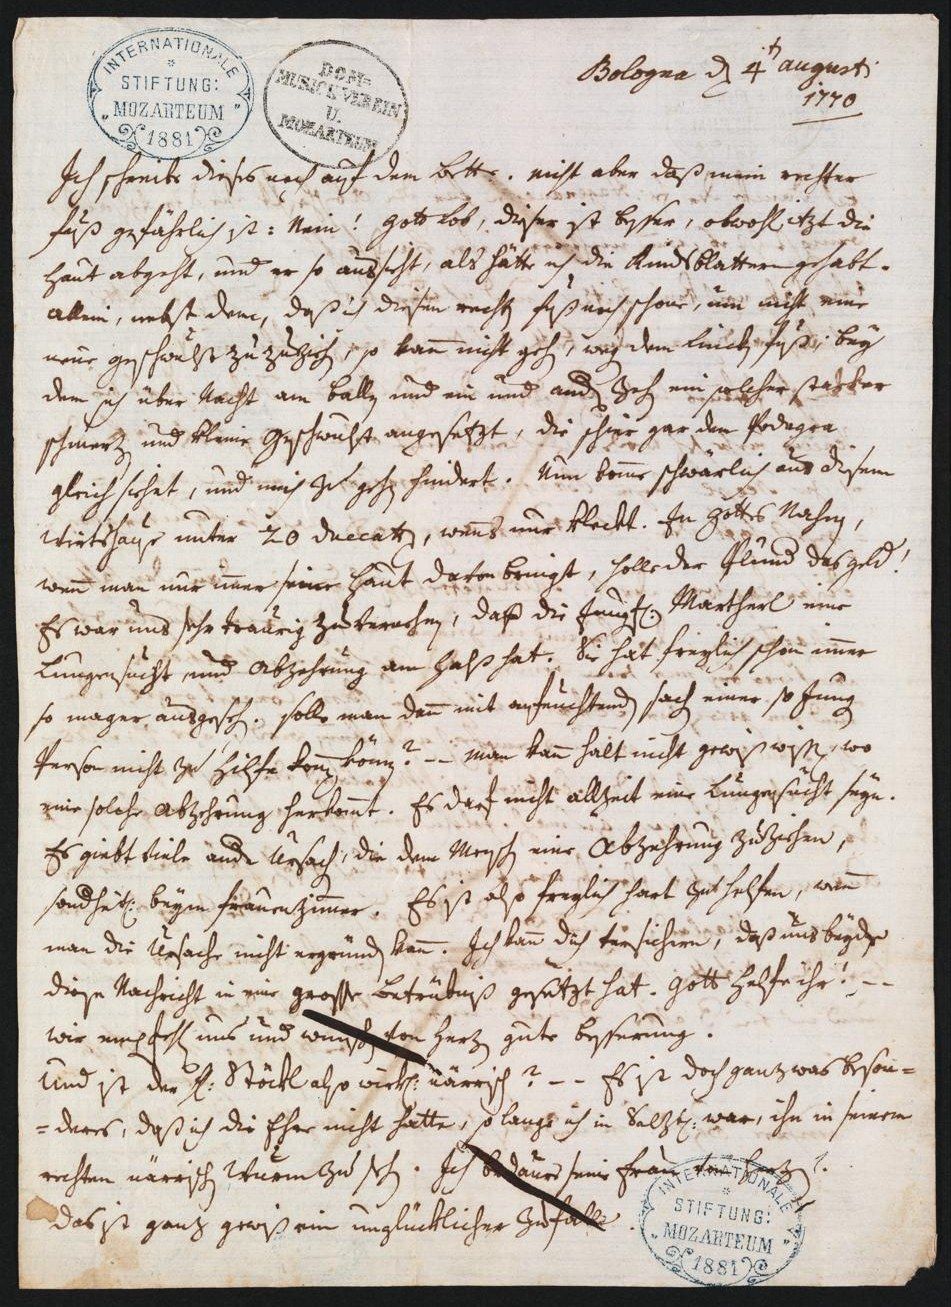 INTERNATIONALE
STIFTUNG:
"MOZARTEUM"
1881
DOM=
MUSICK VEREIN
U.
MOZARTEUM
Bologna d 4t augusti
1770
Ich schreibe dieses noch auf dem bette. nicht aber daß mein rechter
fuß gefährlich ist: Nein! gott lob, dieser ist besser, obwohl itzt die
haut abgeht, und er so aussieht, als hätte ich die Kindsblattern gehabt.
allein, nebst dem, daß ich diesen recht fuß noch schone, um nicht eine
neue geschwulst zu zuziehen, so kann nicht gehen, weg dem lincken fuß, bey
dem sich über Nacht am ballen und ein und andern Zehe ein solcher starker
schmerz und kleine Geschwulst angesetzt, die schier gar dem Podagra
gleich sehet, und mich zu gehen hindert. Nun komme schwärlich aus diesem
wirtshause unter 20 duccatten, wenns nur kleckt. In gottes Nahmen,
wenn man nur immer seine haut davon bringt, holle der Plunder das geld!
Es war uns sehr traurig zu vernehmen, daß die Jungf: Martherl eine
Lungensucht und Abzehrung am halß hat. Sie hat freylich schon immer
so mager ausgesehen. solle man denn mit anfeuchtenden sachen einer so Jungen
Person nicht zu hilfe kommen können? -- man kann halt nicht gewiß wissen, wo
eine solche abzehrung herkommt. Es darf nicht allzeit eine Lungensucht seyn.
Es giebt viele andere Ursachen, die dem Menschen eine Abzehrung zuziehen,
sonderheit: beym frauenzimmer. Es ist also freylich hart zu helfen, wenn
man die Ursache nicht ergründen kann. Ich kann dich versichern, daß uns beyde
diese Nachricht in eine grosse betrübniß gesetzt hat. gott helfe ihr! --
wir empfehlen uns und wünschen von Herzen gute besserung.
Und ist der H: Stöckl also wirkl: närrisch? -- Es ist doch ganz was beson=
=deres, daß ich die Ehre nicht hatte, so lange ich in Salzb: war, ihn in seinem
rechten närrischen Wurm zu sehen. Ich bedaure seine frau von herzen.
das ist ganz gewiß ein unglücklicher Zufall.
INTERNATIONALE
STIFTUNG:
"MOZARTEUM"
1881